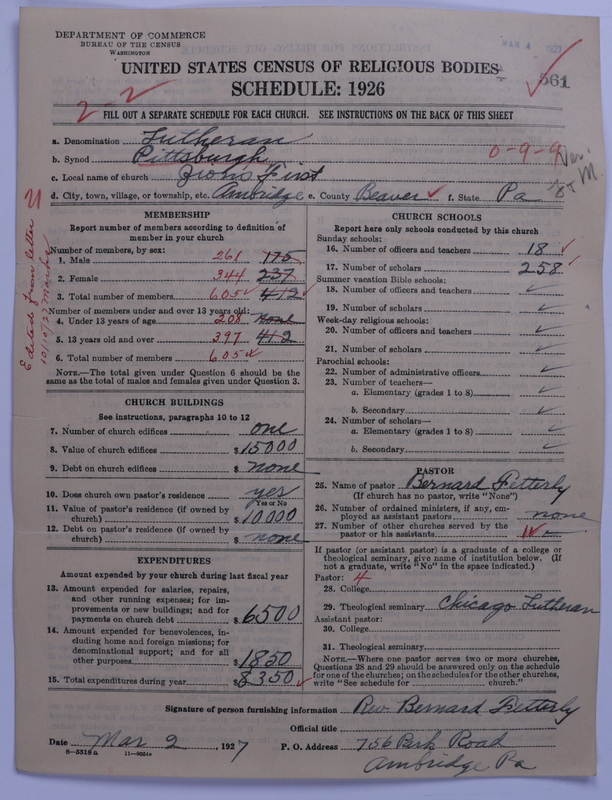 DEPARTMENT OF COMMERCE
BUREAU OF THE CENSUS
WASHINGTON
MAR 4 1927
UNITED STATES CENSUS OF RELIGIOUS BODIES
SCHEDULE: 1926
561
2-2
FILL OUT A SEPARATE SCHEDULE FOR EACH CHURCH. SEE INSTRUCTIONS ON THE BACK OF THIS SHEET
a. Denomination Lutheran
b. Synod Pittsburgh 0-9-9
c. Local name of church Zions First
d. City, town, village, or township, etc. Ambridge e. County Beaver f. State Pa
Edited from letter
10/10/27
MEMBERSHIP
Report number of members according to definition of
member in your church
Number of members, by sex:
1. Male 261 175
2. Female 344 237
3. Total number of members 605 412
Number of members under and over 13 years old:
4. Under 13 years of age 208 none
5. 13 years old and over 397 412
6. Total number of members 605
NOTE.—The total given under Question 6 should be
same as the total of males and females given under Question 3.
CHURCH BUILDINGS
See instructions, paragraphs 10 to 12
7. Number of church edifices one
8. Value of church edifices $15000
9. Debt on church edifices $ none
10. Does church own pastor's residence yes
Yes or No
11. Value of pastor's residence (if owned by
church) $10,000
12. Debt on pastor's residence (if owned by
church) $ none
EXPENDITURES
Amount expended by your church during last fiscal year
13. Amount expended for salaries, repairs,
and other running expenses; for im-
provements or new buildings; and for
payments on church debt $6500
14. Amount expended for benevolences, in-
cluding home and foreign missions; for
denominational support; and for all
other purposes $1850
15. Total expenditures during year $8350
CHURCH SCHOOLS
Report here only schools conducted by this church
Sunday schools:
16. Number of officers and teachers 18
17. Number of scholars 258
Summer vacation Bible schools:
18. Number of officers and teachers
19. Number of scholars
Week-day religious schools:
20. Number of officers and teachers
21. Number of scholars
Parochial schools:
22. Number of administrative officers
23. Number of teachers—
a. Elementary (grades 1 to 8)
b. Secondary
24. Number of scholars—
a. Elementary (grades 1 to 8)
b. Secondary
PASTOR
25. Name of pastor Bernard Fetterly
(If church has no pastor, write "None")
26. Number of ordained ministers, if any, em-
ployed as assistant pastors none
27. Number of other churches served by the
pastor or his assistants
If pastor (or assistant pastor) is a graduate of a college or
theological seminary, give name of institution below. (If
not a graduate, write "No" in the space indicated.)
Pastor: 4
28. College
29. Theological seminary Chicago Lutheran
Assistant pastor:
30. College
31. Theological seminary
NOTE.—Where one pastor serves two or more churches,
Questions 28 and 29 should be answered only on the schedule
for one of the churches; on the schedules for the other churches,
write "See schedule for
Signature of person furnishing information Rev Bernard Fetterly
Official title
Date Mar 2, 1927 P. O. Address 756 Park Road
Ambridge Pa